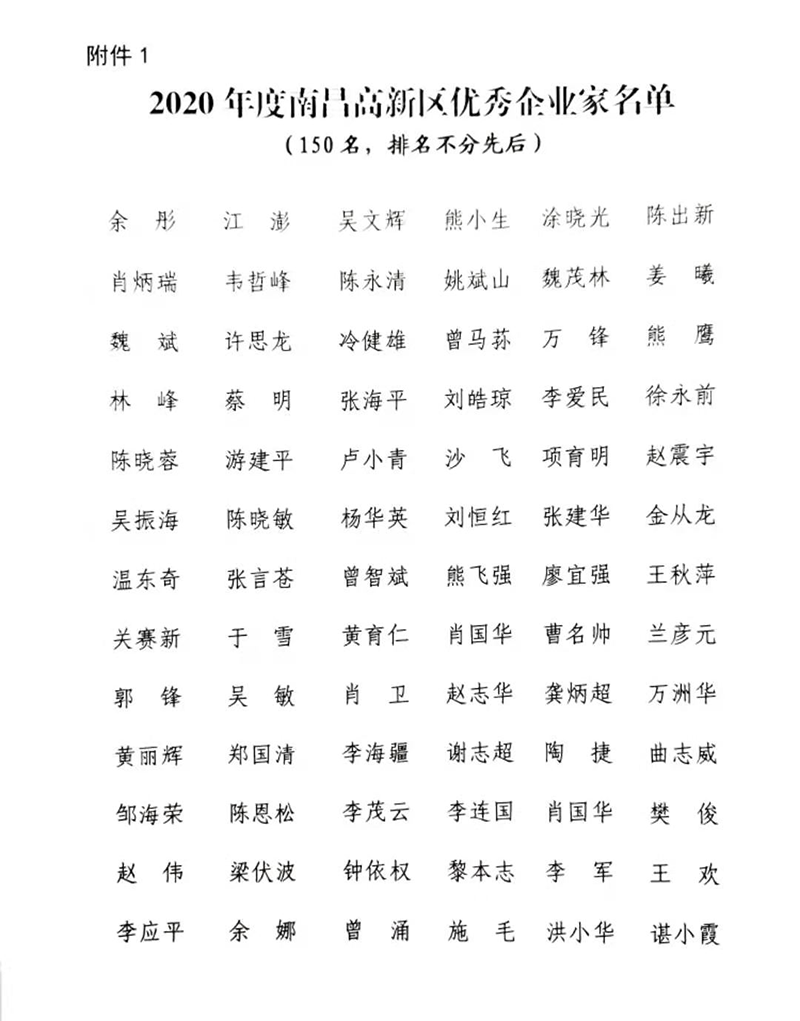 附件 1
2020 年度南昌高新区优秀企业家名单
（150 名，排名不分先后）
余 彤 江 澎 吴文辉 熊小生 涂晓光 陈出新
肖炳瑞 韦哲峰 陈永清 姚斌山 魏茂林 姜 曦
魏 斌 许思龙 冷健雄 曾马荪 万 锋 熊 鹰
林 峰 蔡 明 张海平 刘皓琼 李爱民 徐永前
陈晓蓉 游建平 卢小青 沙 飞 项育明 赵震宇
吴振海 陈晓敏 杨华英 刘恒红 张建华 金从龙
温东奇 张言苍 曾智斌 熊飞强 廖宜强 王秋萍
关赛新 于 雪 黄育仁 肖国华 曹名帅 兰彦元
郭 锋 吴 敏 肖 卫 赵志华 龚炳超 万洲华
黄丽辉 郑国清 李海疆 谢志超 陶 捷 曲志威
邹海荣 陈恩松 李茂云 李连国 肖国华 樊 俊
赵 伟 梁伏波 钟依权 黎本志 李 军 王 欢
李应平 余 娜 曾 涌 施 毛 洪小华 谌小霞